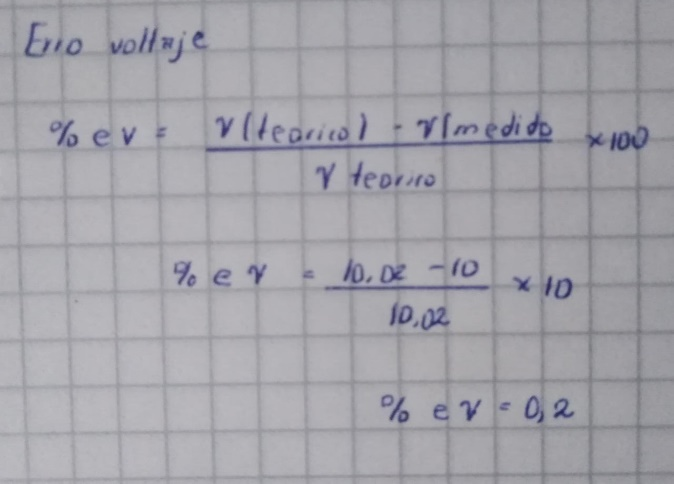 Erro voltaje
% e v = V(teorico) - V(medido / V teorico × 100
% e V = 10,02 - 10 / 10,02 × 10
% e V = 0,2